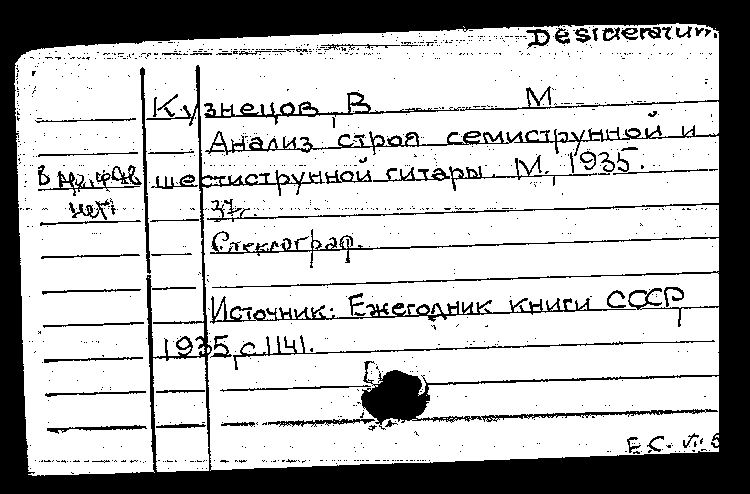 Desideratum
Кузнецов, В М
Анализ строя семиструнной и
В
шестиструнной гитары. М., 1935.
нет
37
Стеклограф.
Источник: Ежегодник книги СССР,
1935, с. 1141.
Е.С.